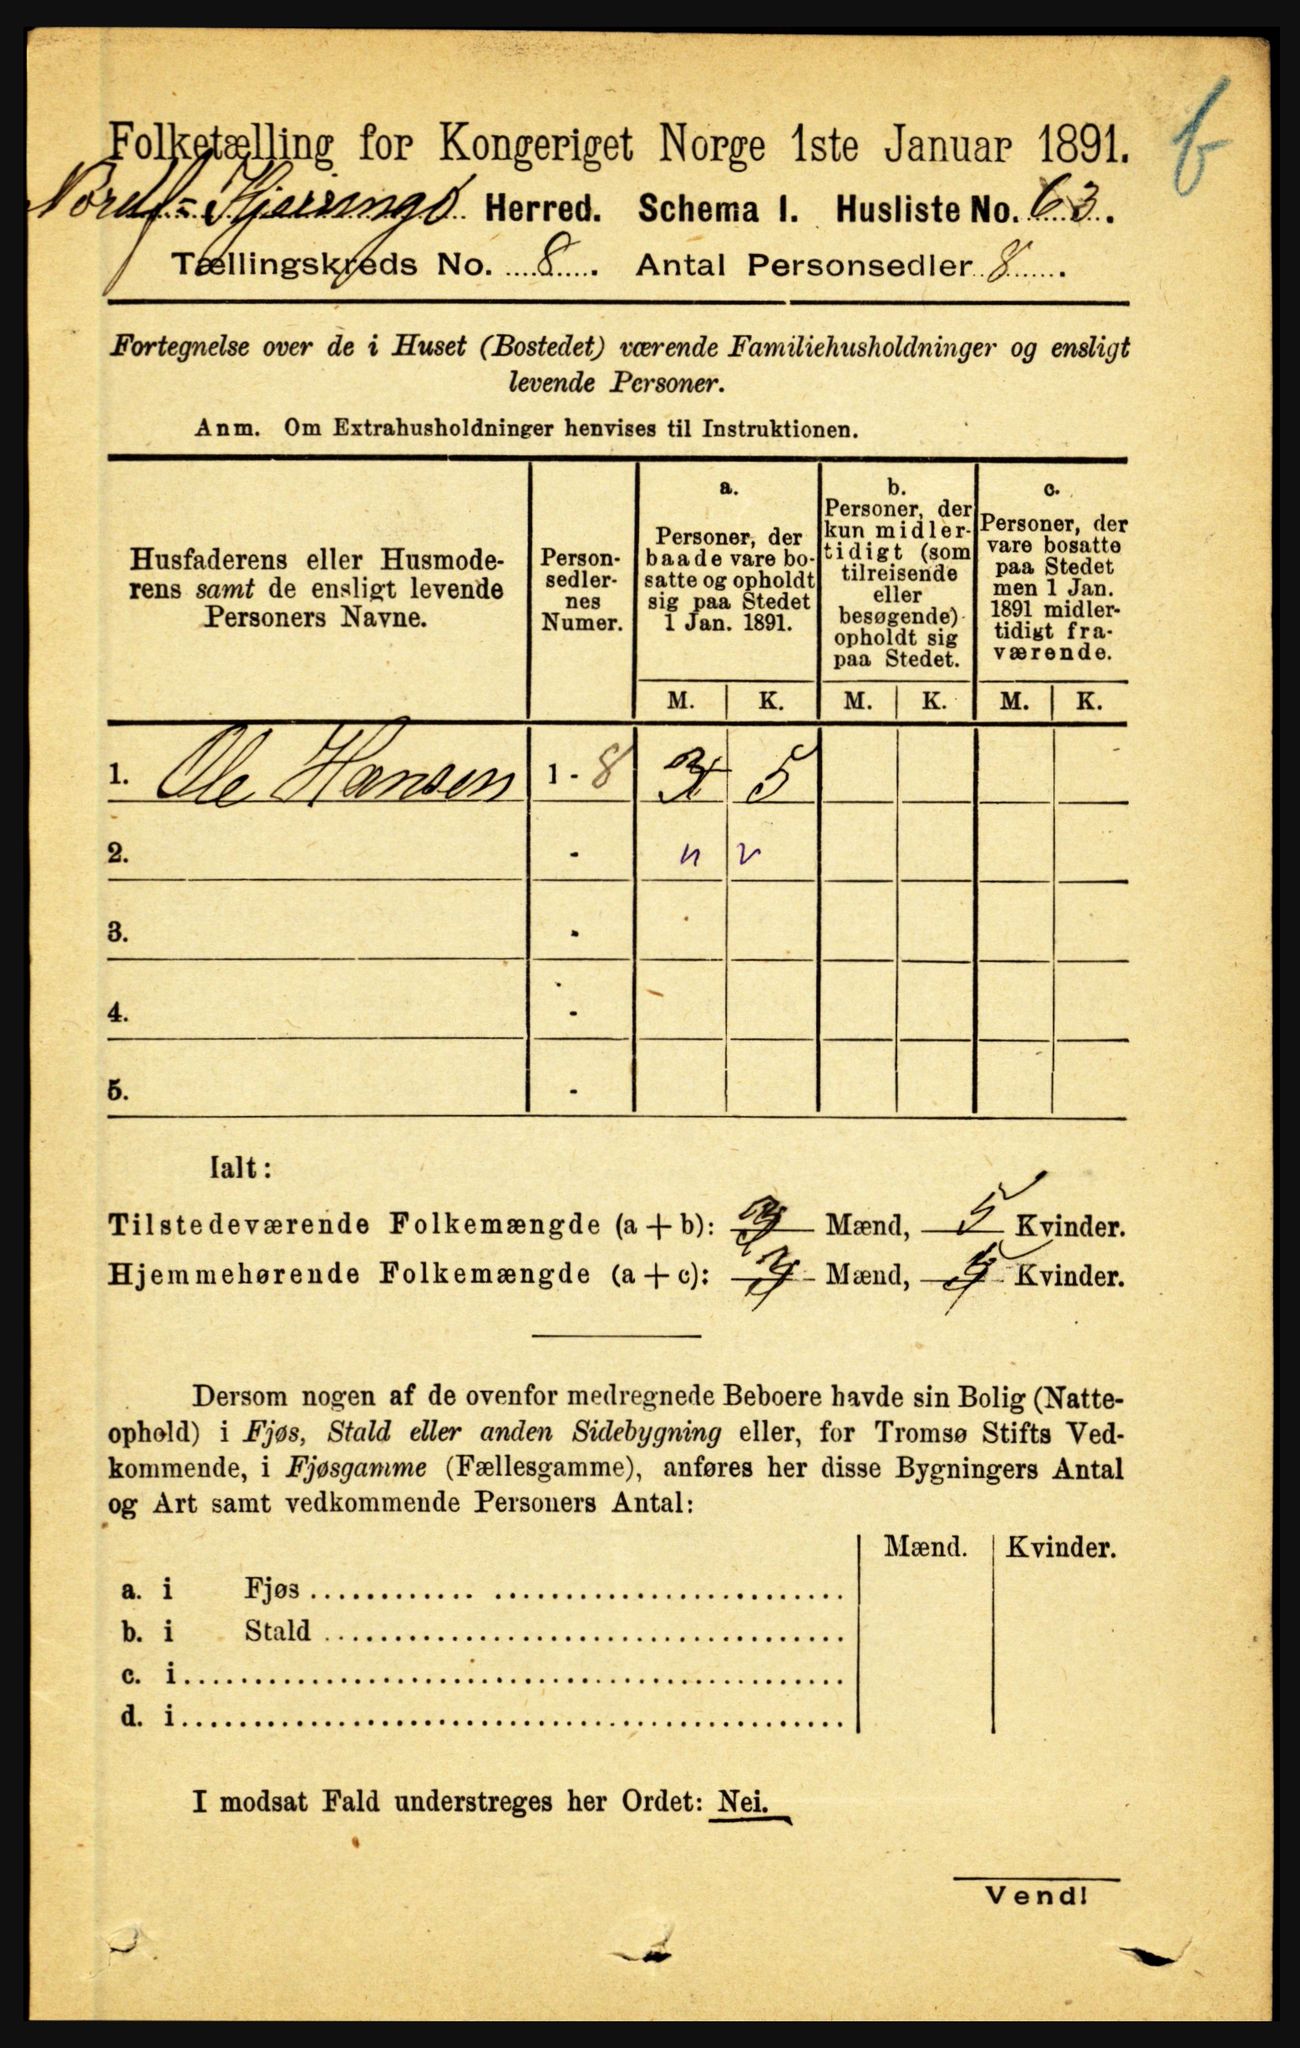 b
Folketælling for Kongeriget Norge 1ste Januar 1891.
Nordf-Kjerringø Herred. Schema I. Husliste No. 63.
Tællingskreds No. 8. Antal Personsedler 8.
Fortegnelse over de i Huset (Bostedet) værende Familiehusholdninger og ensligt
levende Personer.
Anm. Om Extrahusholdninger henvises til Instruktionen.
Husfaderens eller Husmode-
rens samt de ensligt levende
Personers Navne.
Person-
sedler-
nes
Numer.
a.
Personer, der
baade vare bo-
satte og opholdt
sig paa Stedet
1 Jan. 1891.
b.
Personer, der
kun midler-
tidigt (som
tilreisende
eller
besøgende)
opholdt sig
paa Stedet.
c.
Personer, der
vare bosatte
paa Stedet
men 1 Jan.
1891 midler-
tidigt fra-
værende.
M. K. M. K. M. K.
1. Ole Hansen 1 - 8 3 5
2. -
3. -
4. -
5. -
Ialt:
Tilstedeværende Folkemængde (a + b): 3 Mænd, 5 Kvinder.
Hjemmehørende Folkemængde (a + c): 3 Mænd, 5 Kvinder.
Dersom nogen af de ovenfor medregnede Beboere havde sin Bolig (Natte-
ophold) i Fjøs, Stald eller anden Sidebygning eller, for Tromsø Stifts Ved-
kommende, i Fjøsgamme (Fællesgamme), anføres her disse Bygningers Antal
og Art samt vedkommende Personers Antal:
Mænd. Kvinder.
a. i Fjøs
b. i Stald
c. i
d. i
I modsat Fald understreges her Ordet: Nei.
Vend!